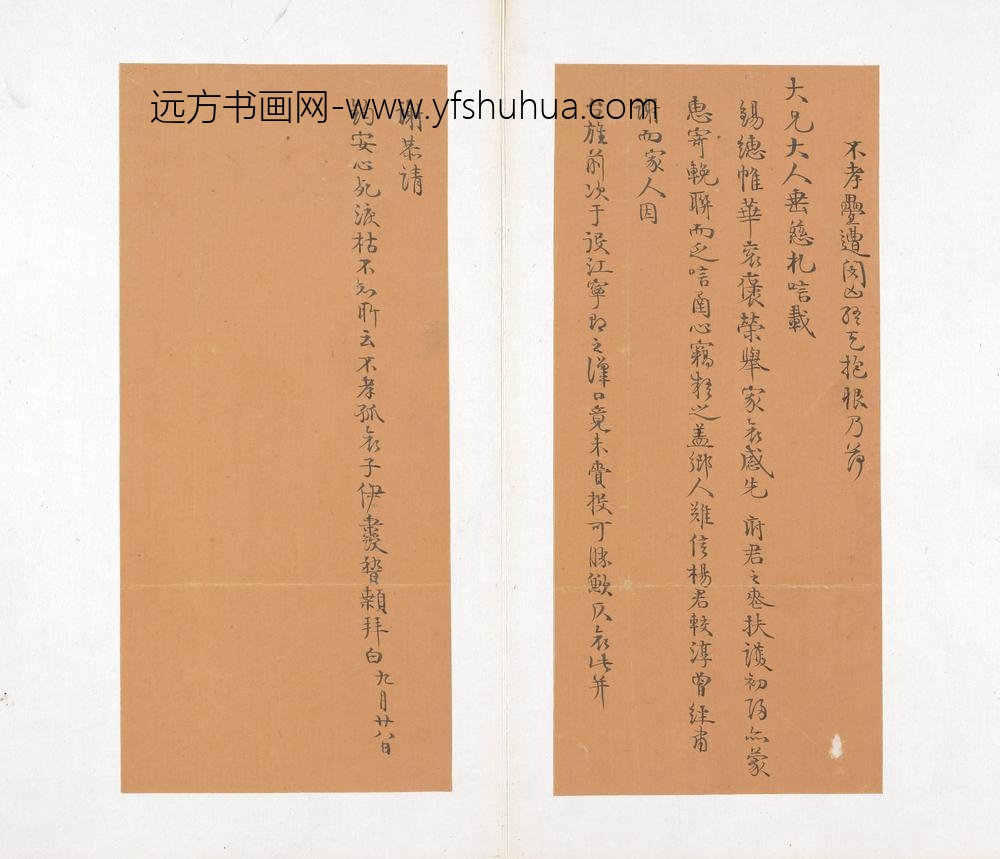 远方书画网-www.yfshuhua.com
不孝疊遭閔凶終天抱恨乃荷
大兄大人垂慈札唁載
錫繐帷華袞褒榮舉家哀感先 府君之喪扶護初歸亦蒙
惠寄輓聯而乏唁函心竊疑之盖鄉人難信楊君較淳曾經肅
謝而家人因
旌前次于役江寧即之漢口竟未賫投可勝歉仄哀此并
謝恭請
安心死淚枯不知所云不孝孤哀子伊 稽顙拜白九月廿八日